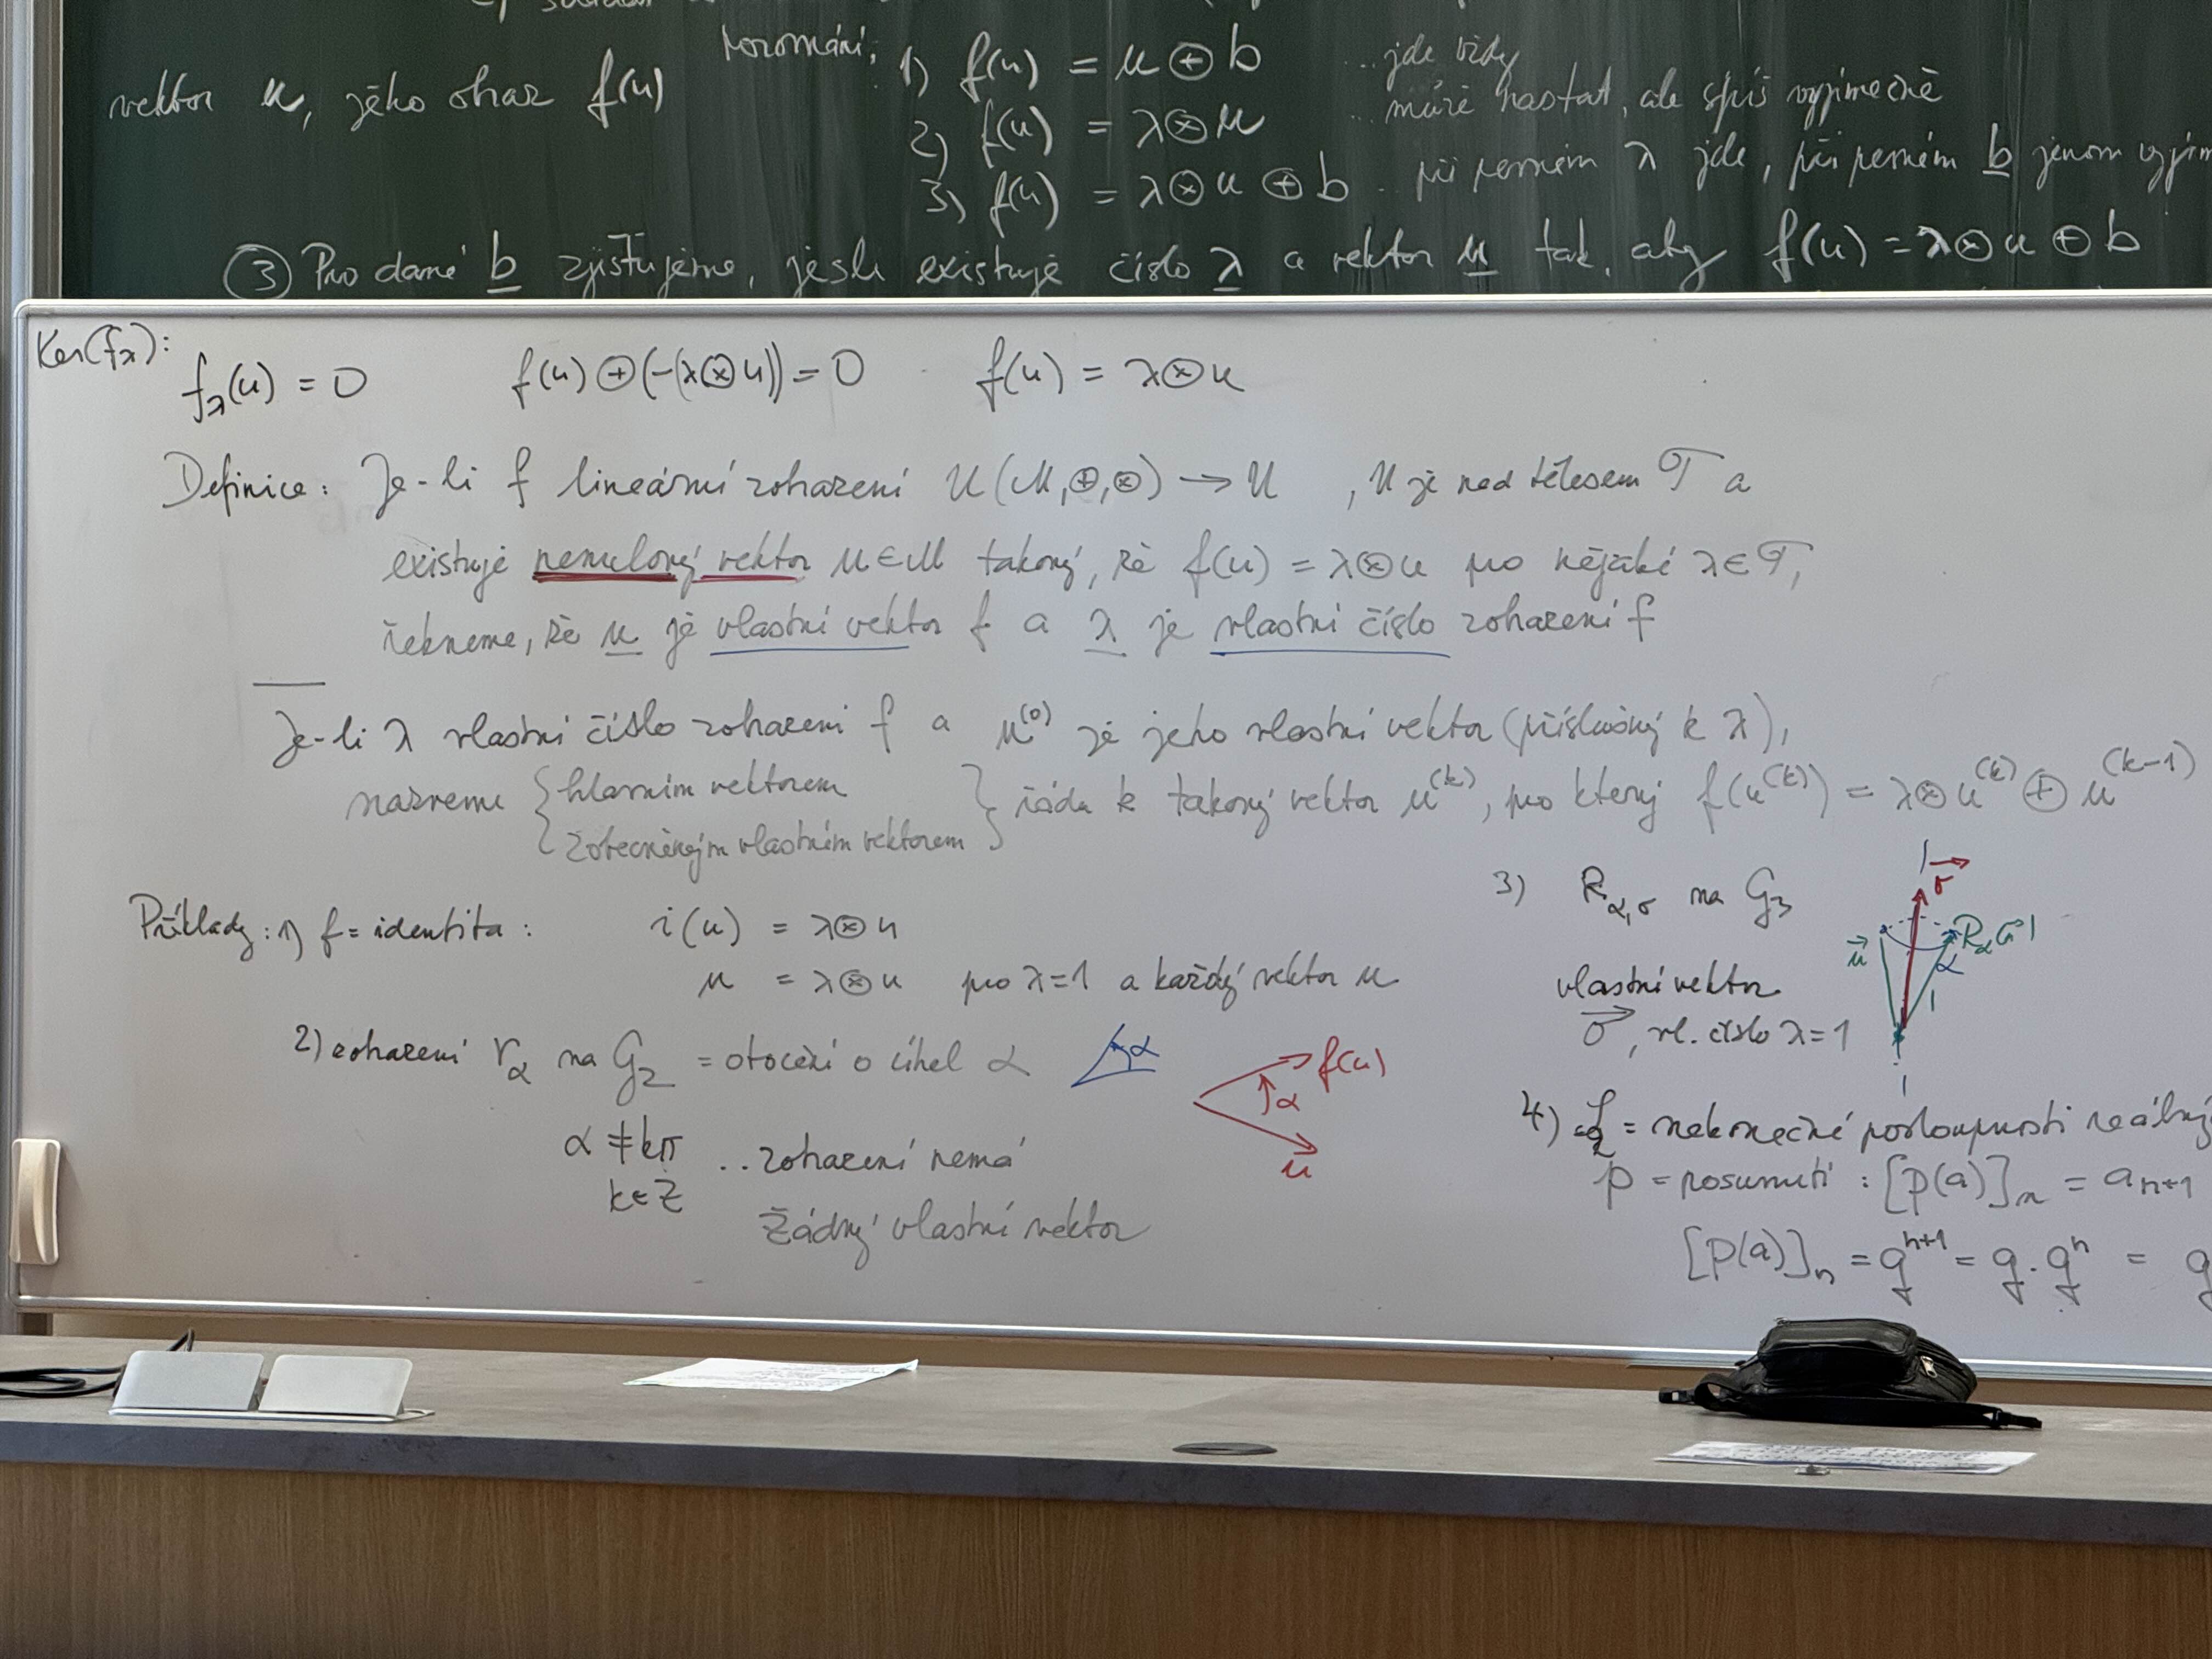 vektor u, jeho obraz f(u)
porovnání: 1) f(u) = u ⊕ b ...jde vždy
2) f(u) = λ⊗u ...může nastat, ale spíš vyjímečně
3) f(u) = λ⊗u ⊕ b .. při pevném λ jde, při pevném b jenom
③ Pro dané b zjišťujeme, jestli existuje číslo λ a vektor u tak, aby f(u) = λ⊗u ⊕ b
Ker(fλ):
fλ(u) = 0 f(u)⊕(-(λ⊗u)) = 0 f(u) = λ⊗u
Definice: Je-li f lineární zobrazení U(M,⊕,⊗) → U , U je nad tělesem T a
existuje nenulový vektor u∈M takový, že f(u) = λ⊗u pro nějaké λ∈T,
řekneme, že u je vlastní vektor f a λ je vlastní číslo zobrazení f
Je-li λ vlastní číslo zobrazení f a u^(0) je jeho vlastní vektor (příslušný k λ),
nazveme { hlavním vektorem
zobecněným vlastním vektorem } řádu k takový vektor u^(k), pro který f(u^(k)) = λ⊗u^(k) ⊕ u^(k-1)
Příklady: 1) f = identita : i(u) = λ⊗u
u = λ⊗u pro λ=1 a každý vektor u
2) zobrazení r_α na G₂ = otočení o úhel α
α
f(u)
α
u
α ≠ kπ ..zobrazení nemá
k∈Z
žádný vlastní vektor
3) R_α,σ na G₃
σ
u
R_α(u)
α
vlastní vektor
σ, vl. číslo λ=1
4) = nekonečné posloupnosti
p = posunutí : [p(a)]_n = a_n+1
[p(a)]_n = q^n+1 = q·q^n = q